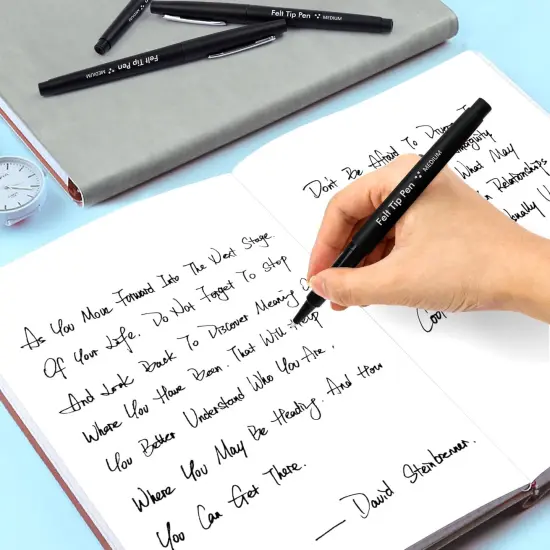 Felt Tip Pen MEDIUM
MEDIUM Felt Tip Pen
As You Move Forward Into The Next Stage.
Of Your Life. Do Not Forget To Stop
And Look Back To Discover Meaning
Where You Have Been. That Will Help
You Better Understand Who You Are.
Where You May Be Heading. And How
You Can Get There.
— David Steinbrenner.
Don't Be Afraid To
What May
Relationships
Felt Tip Pen MEDIUM